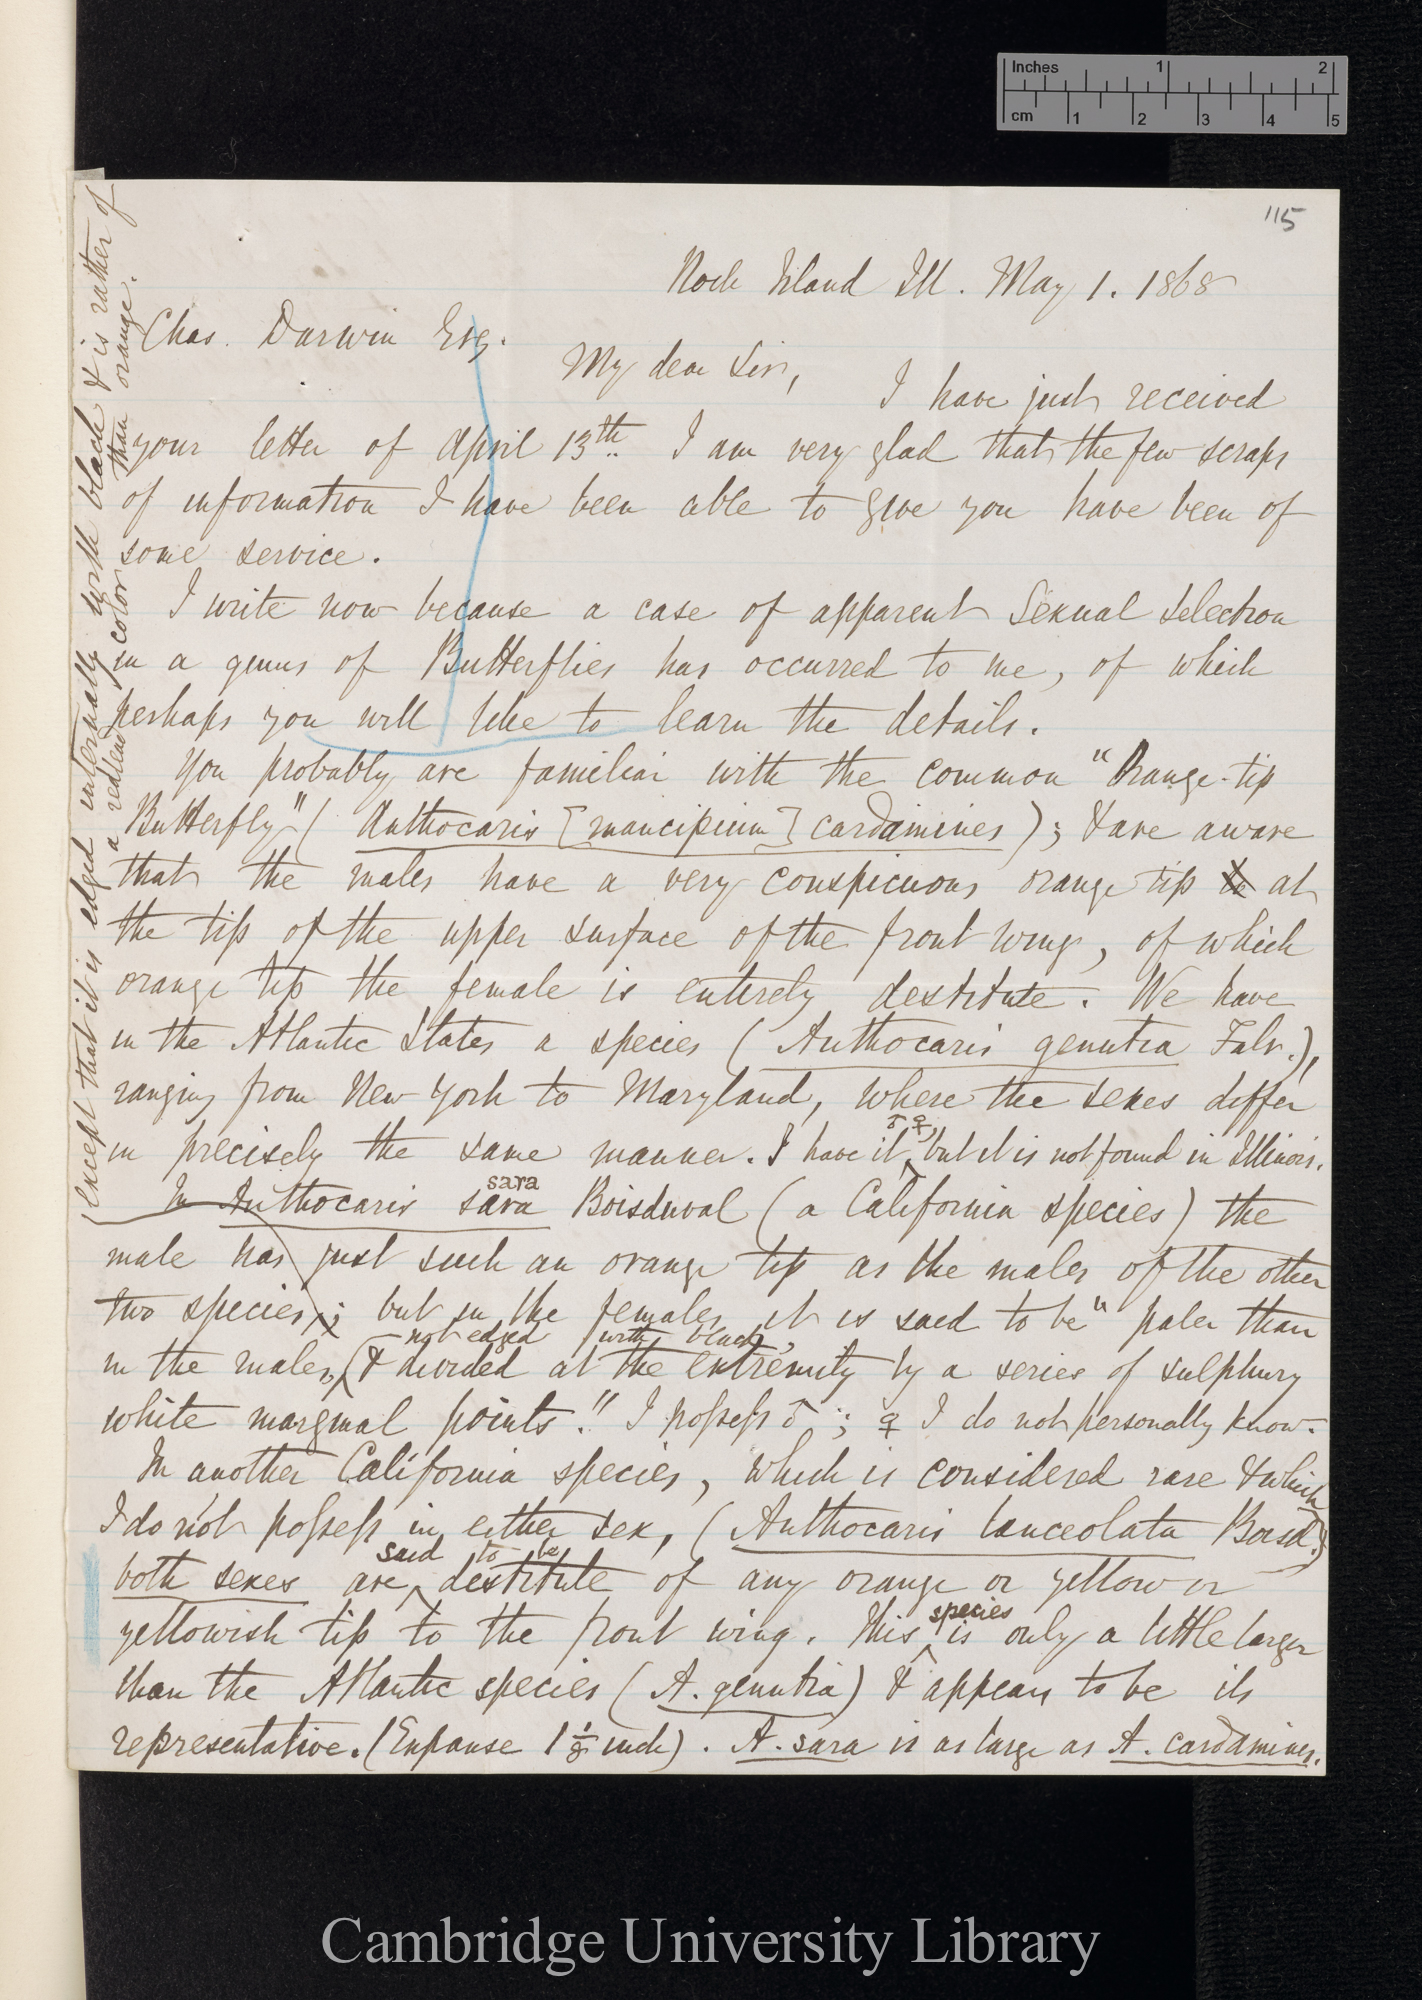 Inches 1 2
cm 1 2 3 4 5
115
Rock Island Ill. May 1. 1868
Chas. Darwin Esq.
My dear Sir,
I have just received
your letter of April 13th. I am very glad that the few scraps
of information I have been able to give you have been of
some service.
I write now because a case of apparent Sexual Selection
in a genus of Butterflies has occurred to me, of which
perhaps you will like to learn the details.
You probably are familiar with the common "Orange-tip
Butterfly" (Anthocaris [mancipium] cardamines); & are aware
that the males have a very conspicuous orange tip to at
the tip of the upper surface of the front wing, of which
orange tip the female is entirely destitute. We have
in the Atlantic States a species (Anthocaris genutia Fabr.),
ranging from New York to Maryland, where the sexes differ
in precisely the same manner. I have it ♂ ♀, but it is not found in Illinois.
In Anthocaris sara sara Boisduval (a California species) the
male has just such an orange tip as the males of the other
two species; but in the females it is said to be "paler than
not edged with black,
in the males, (& divided at the extremity by a series of sulphury
white marginal points." I possess ♂; ♀ I do not personally know.
In another California species, which is considered rare & which
I do not possess in either sex, (Anthocaris lanceolata Boisd.)
said to be
both sexes are destitute of any orange or yellow or
yellowish tip to the front wing. This species is only a little larger
than the Atlantic species (A. genutia) & appears to be its
representative. (Expanse 1 1/2 inch). A. sara is as large as A. cardamines.
except that it is edged internally with black & is rather of
a redder color than orange.
Cambridge University Library